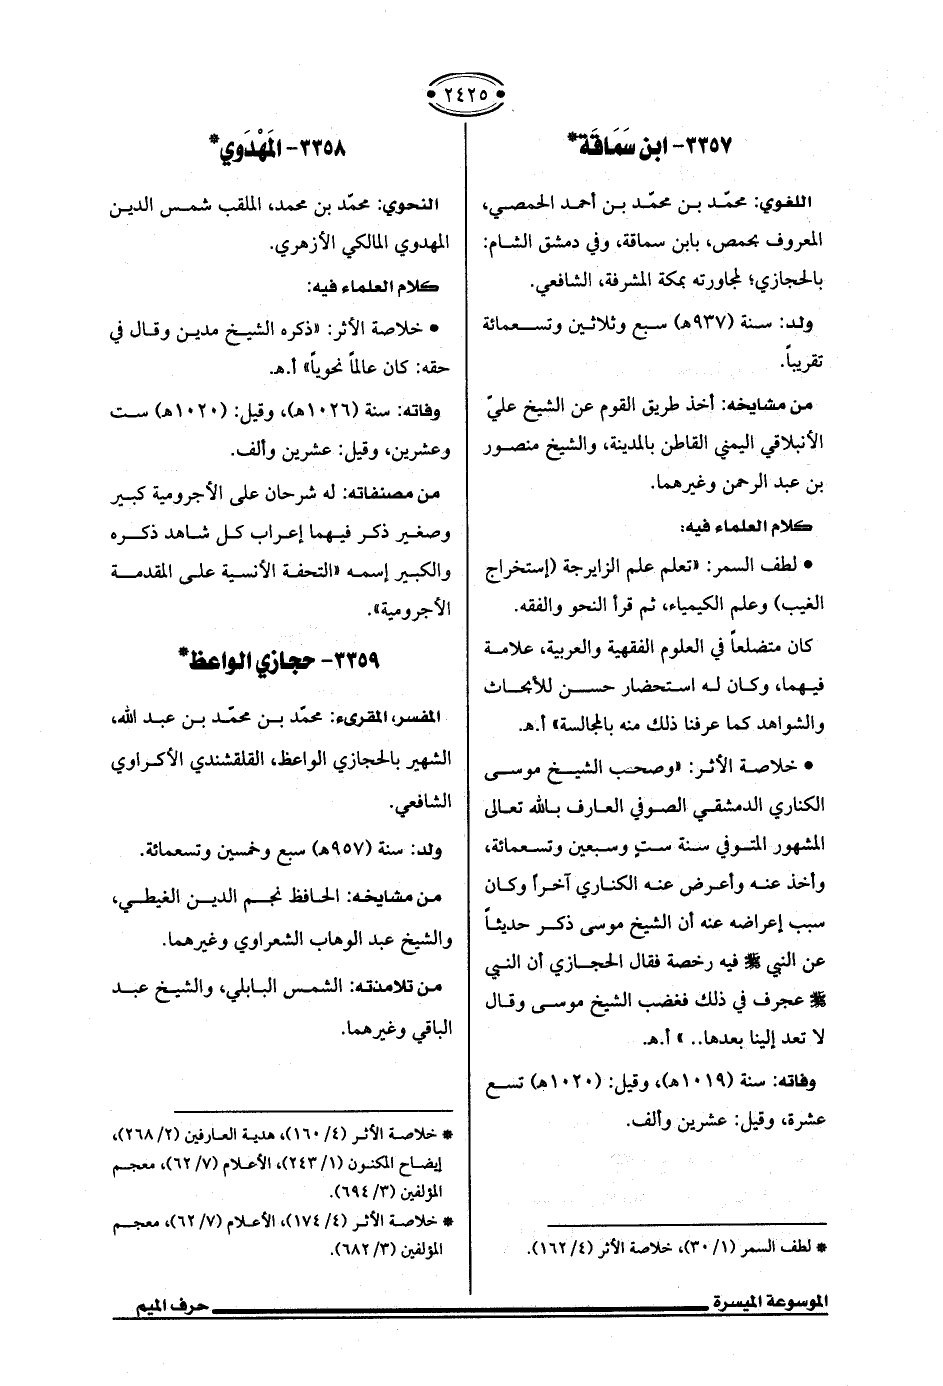 ٢٤٢٥
٣٣٥٧- ابن سَمَاقَة*
اللغوي: محمّد بن محمّد بن أحمد الحمصي،
المعروف بحمص، بابن سماقة، وفي دمشق الشام:
بالحجازي؛ لمجاورته بمكة المشرفة، الشافعي.
ولد: سنة (٩٣٧هـ) سبع وثلاثين وتسعمائة
تقريباً.
من مشايخه: أخذ طريق القوم عن الشيخ عليّ
الأنبلاقي اليمني القاطن بالمدينة، والشيخ منصور
بن عبد الرحمن وغيرهما.
كلام العلماء فيه:
• لطف السمر: «تعلم علم الزايرجة (إستخراج
الغيب) وعلم الكيمياء، ثم قرأ النحو والفقه.
كان متضلعاً في العلوم الفقهية والعربية، علامة
فيهما، وكان له استحضار حسن للأبحاث
والشواهد كما عرفنا ذلك منه بالمجالسة» أ.هـ.
• خلاصة الأثر: «وصحب الشيخ موسى
الكناري الدمشقي الصوفي العارف بالله تعالى
المشهور المتوفي سنة ستٍ وسبعين وتسعمائة،
وأخذ عنه وأعرض عنه الكناري آخراً وكان
سبب إعراضه عنه أن الشيخ موسى ذكر حديثاً
عن النبي ﷺ فيه رخصة فقال الحجازي أن النبي
ﷺ عجرف في ذلك فغضب الشيخ موسى وقال
لا تعد إلينا بعدها.. » أ.هـ.
وفاته: سنة (١٠١٩هـ)، وقيل: (١٠٢٠هـ) تسع
عشرة، وقيل: عشرين وألف.
* لطف السمر (١/ ٣٠)، خلاصة الأثر (٤/ ١٦٢).
٣٣٥٨- المَهْدَوي*
النحوي: محمّد بن محمد، الملقب شمس الدين
المهدوي المالكي الأزهري.
كلام العلماء فيه:
• خلاصة الأثر: «ذكره الشيخ مدين وقال في
حقه: كان عالماً نحوياً» أ.هـ.
وفاته: سنة (١٠٢٦هـ)، وقيل: (١٠٢٠هـ) ست
وعشرين، وقيل: عشرين وألف.
من مصنفاته: له شرحان على الأجرومية كبير
وصغير ذكر فيهما إعراب كل شاهد ذكره
والكبير إسمه «التحفة الأنسية على المقدمة
الأجرومية».
٣٣٥٩- حجازي الواعظ*
المفسر، المقرىء: محمّد بن محمّد بن عبد الله،
الشهير بالحجازي الواعظ، القلقشندي الأكراوي
الشافعي.
ولد: سنة (٩٥٧هـ) سبع وخمسين وتسعمائة.
من مشايخه: الحافظ نجم الدين الغيطي،
والشيخ عبد الوهاب الشعراوي وغيرهما.
من تلامذته: الشمس البابلي، والشيخ عبد
الباقي وغيرهما.
* خلاصة الأثر (٤/ ١٦٠)، هدية العارفين (٢/ ٢٦٨)،
إيضاح المكنون (١/ ٢٤٣)، الأعلام (٧/ ٦٢)، معجم
المؤلفين (٣/ ٦٩٤).
* خلاصة الأثر (٤/ ١٧٤)، الأعلام (٧/ ٦٢)، معجم
المؤلفين (٣/ ٦٨٢).
الموسوعة الميسرة
حرف الميم